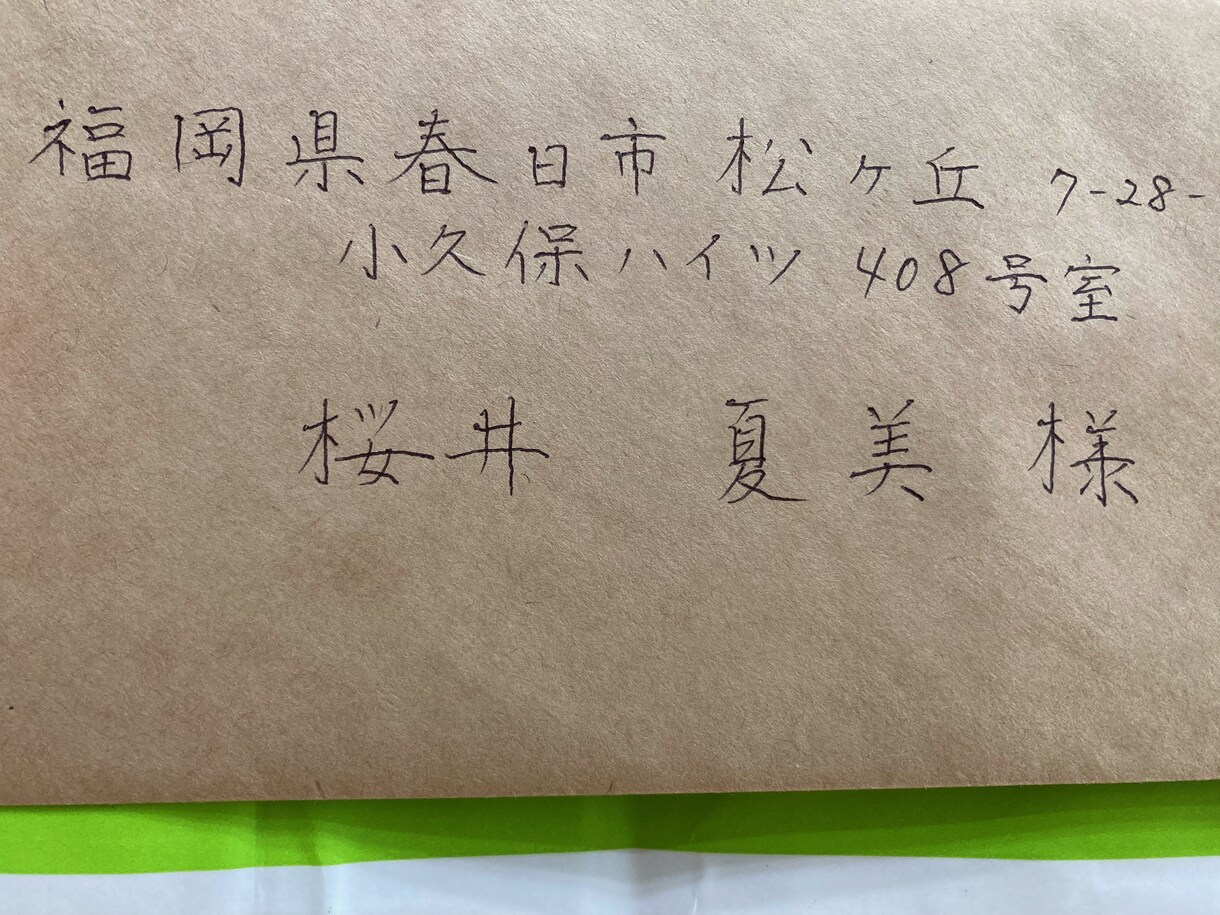 福岡県春日市松ヶ丘 7-28-
小久保ハイツ 408号室
桜井 夏美様